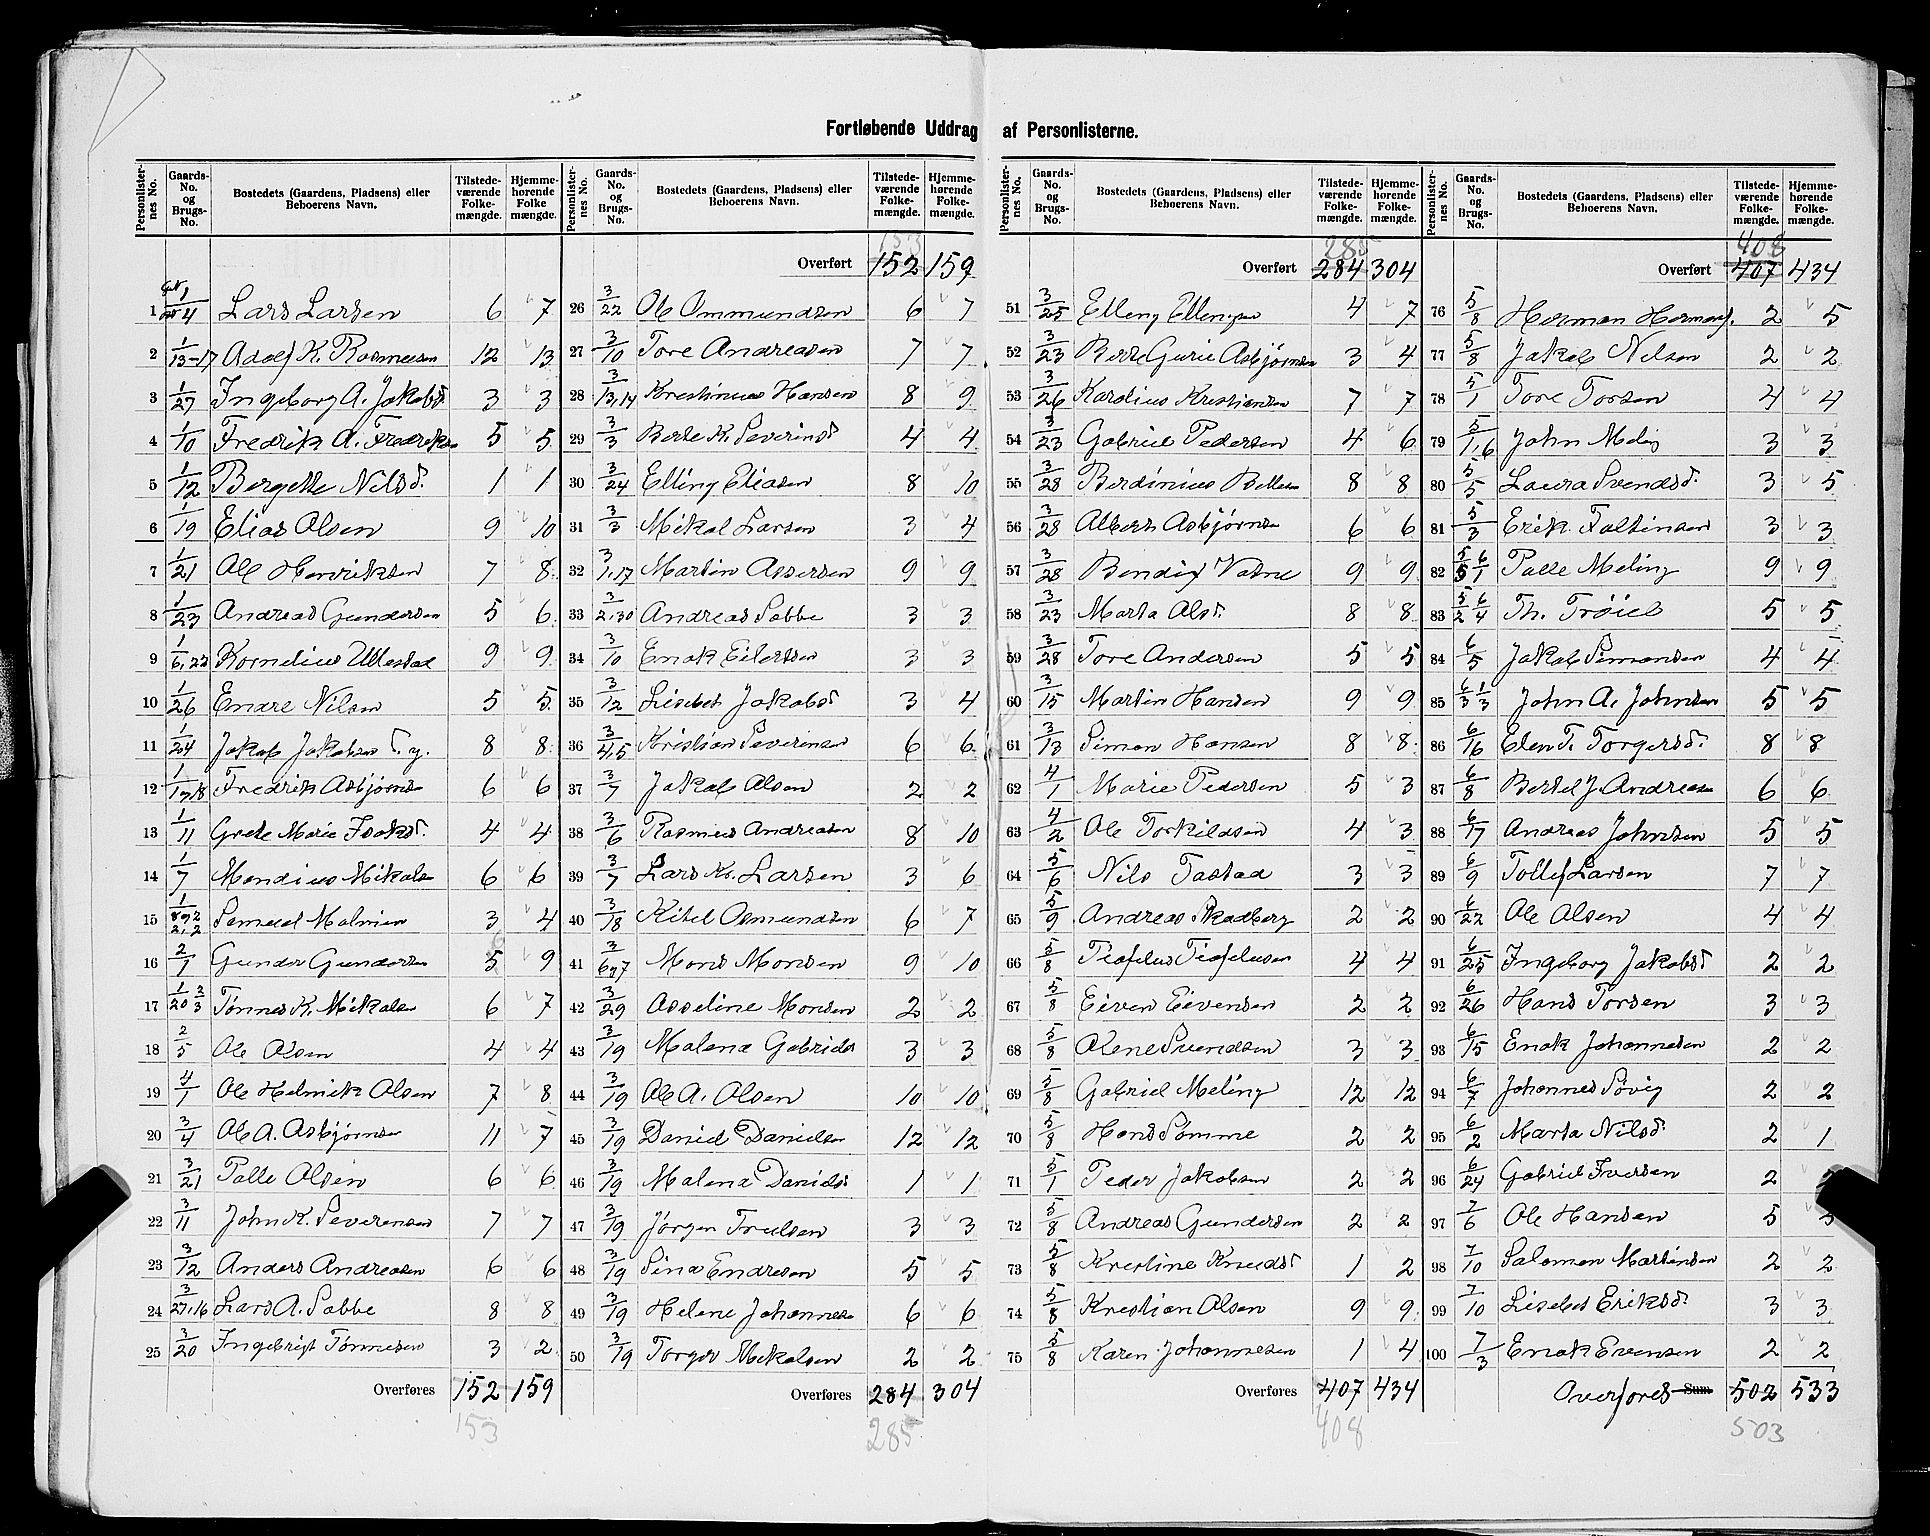 Fortløbende Uddrag af Personlisterne.
Personlister-nes No. Gaards-No. og Brugs-No. Bostedets (Gaardens, Pladsens) eller Beboerens Navn. Tilstede-værende Folke-mængde. Hjemme-hørende Folke-mængde.
1 1/4 Lars Larsen 6 7
2 1/13-17 Adolf K. Rasmussen 12 13
3 1/27 Ingeborg A. Jakobsd 3 3
4 1/10 Fredrik A. Fredriksen 5 5
5 1/12 Bergette Nilsd. 1 1
6 1/19 Elias Olsen 9 10
7 1/21 Ole Henriksen 7 8
8 1/23 Andreas Gundersen 5 6
9 1/6,22 Kornelius Ullestad 9 9
10 1/26 Endre Nilsen 5 5
11 1/24 Jakob Jakobsen T. y. 8 8
12 1/17,18 Fredrik Asbjørns 6 6
13 1/11 Grete Marie Isaksd. 4 4
14 1/7 Mondius Mikalsen 6 6
15 1/8,9,2 2,2 Samuel Malmin 3 4
16 2/1 Gunder Gundersen 5 9
17 1/20 2/3 Tønnes K. Mikalsen 6 7
18 2/5 Ole Olsen 4 4
19 4/1 Ole Helmik Olsen 7 8
20 3/4 Ole A. Asbjørnsen 11 7
21 3/21 Palle Olsen 6 6
22 3/11 John K. Severensen 7 7
23 3/12 Anders Andreasen 6 6
24 3/27,16 Lars A. Sabbe 8 8
25 3/20 Ingebrigt Tønnesen 3 2
Overføres 152 159
153
Personlister-nes No. Gaards-No. og Brugs-No. Bostedets (Gaardens, Pladsens) eller Beboerens Navn. Tilstede-værende Folke-mængde. Hjemme-hørende Folke-mængde.
153
Overført 152 159
26 3/22 Ole Ommundsen 6 7
27 3/10 Tore Andreasen 7 7
28 3/13,14 Kristinius Hansen 8 9
29 3/3 Berte K. Severinsd 4 4
30 3/24 Elling Eliasen 8 10
31 3/3 Mikal Larsen 3 4
32 3/1,17 Martin Assersen 9 9
33 3/2,30 Andreas Sabbe 3 3
34 3/10 Enok Eilertsen 3 3
35 3/12 Lisebet Jakobsd 3 4
36 3/4,5 Kristian Severinsen 6 6
37 3/7 Jakob Olsen 2 2
38 3/6 Rasmus Andreasen 8 10
39 3/7 Lars Kr. Larsen 3 6
40 3/18 Kitel Osmundsen 6 7
41 3/6,7 Mons Monsen 9 10
42 3/29 Asseline Monsen 2 2
43 3/19 Malena Gabriels 3 3
44 3/19 Ole A. Olsen 10 10
45 3/19 Daniel Danielsen 12 12
46 3/19 Malena Daniels 1 1
47 3/19 Jørgen Trulsen 3 3
48 3/19 Sina Endresen 5 5
49 3/19 Helene Johannesen 6 6
50 3/19 Torger Mikalsen 2 2
Overføres 284 304
285
Personlister-nes No. Gaards-No. og Brugs-No. Bostedets (Gaardens, Pladsens) eller Beboerens Navn. Tilstede-værende Folke-mængde. Hjemme-hørende Folke-mængde.
285
Overført 284 304
51 3/25 Elling Ellingsen 4 7
52 3/23 Berte Gurie Asbjørnsen 3 4
53 3/26 Karolius Kristiansen 7 7
54 3/23 Gabriel Pedersen 4 6
55 3/28 Berdinius 8 8
56 3/28 Albert Asbjørnsen 6 6
57 3/28 Bendix Vatne 9 9
58 3/23 Marta Olsd. 8 8
59 3/28 Tore Andersen 5 5
60 3/15 Martin Hansen 9 9
61 3/13 Simon Hansen 8 8
62 4/1 Marie Pedersen 5 3
63 4/2 Ole Torkildsen 4 3
64 5/6 Nils Tastad 3 3
65 5/9 Andreas Skadberg 2 2
66 5/8 Tiofelus Tiofelusen 4 4
67 5/8 Eiven Eivensen 2 2
68 5/8 Olene Svendsen 3 3
69 5/8 Gabriel Meling 12 12
70 5/8 Hans Sømme 2 2
71 5/1 Peder Jakobsen 2 2
72 5/8 Andreas Gundersen 2 2
73 5/8 Kristine Knudsd 1 2
74 5/8 Kristian Olsen 9 9
75 5/8 Karen Johannesen 1 4
Overføres 407 434
408
Personlister-nes No. Gaards-No. og Brugs-No. Bostedets (Gaardens, Pladsens) eller Beboerens Navn. Tilstede-værende Folke-mængde. Hjemme-hørende Folke-mængde.
408
Overført 407 434
76 5/8 Herman Hermans. 2 5
77 5/8 Jakob Nilsen 2 2
78 5/1 Tore Torsen 4 4
79 5/1,6 John Meling 3 3
80 5/5 Laura Svendsd. 3 5
81 5/3 Erik Faltinsen 3 3
82 5/5 6/1 Palle Meling 9 9
83 5/2 6/4 Th. Trøiel 5 5
84 6/5 Jakob Simonsen 4 4
85 6/3 1/3 John A. Johnsen 5 5
86 6/16 Elen T. Torgersd. 8 8
87 6/8 Bertel J. Andreasen 6 6
88 6/17 Andreas Johnsen 5 5
89 6/9 Tollef Larsen 7 7
90 6/22 Ole Olsen 4 4
91 6/25 Ingeborg Jakobsd 2 2
92 6/26 Hans Torsen 3 3
93 6/15 Enok Johannesen 2 2
94 6/7 Johannes Søvig 2 2
95 6/2 Marta Nilsd. 2 1
96 6/24 Gabriel Iversen 2
97 7/6 Ole Hansen 5 5
98 7/10 Salomon Martinsen 2 2
99 7/10 Lisebet Eriksd. 3 3
100 7/3 Enok Evensen 2 2
Overføres Sum 502 533
503